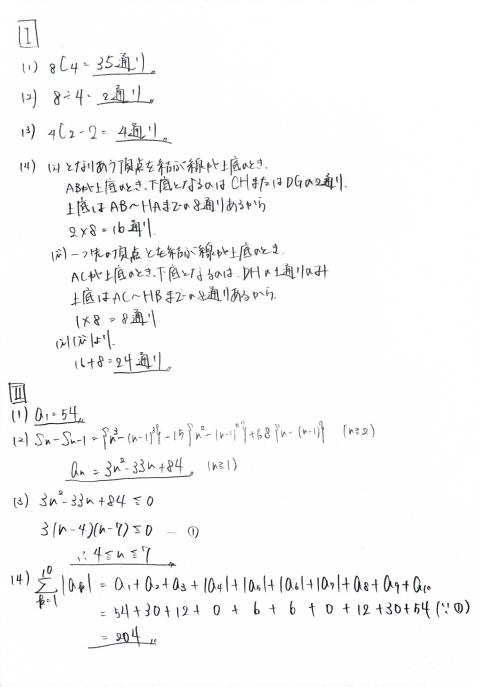 I
(1) 8C4 = 35通り
(2) 8÷4 = 2通り
(3) 4C2 - 2 = 4通り
(4) (i) となりあう頂点を結ぶ線が上底のとき.
ABが上底のとき、下底となるのは CHまたはDGの2通り.
上底は AB〜HAまでの8通りあるから
2×8 = 16通り
(ii) 一つ先の頂点とを結ぶ線が上底のとき.
ACが上底のとき、下底となるのは、DHの1通りのみ
上底はAC〜HBまでの8通りあるから.
1×8 = 8通り
(i)(ii)より.
16+8 = 24通り
II
(1) a₁ = 54
(2) Sn - Sn-1 = {n³-(n-1)³} - 15{n²-(n-1)²} + 68{n-(n-1)} (n≧2)
an = 3n² - 33n + 84 (n≧1)
(3) 3n² - 33n + 84 ≦ 0
3(n-4)(n-7) ≦ 0 — ①
∴ 4 ≦ n ≦ 7
(4) 10Σk=1 |ak| = a₁+a₂+a₃+|a₄|+|a₅|+|a₆|+|a₇|+a₈+a₉+a₁₀
= 54+30+12+0+6+6+0+12+30+54 (∵①)
= 204